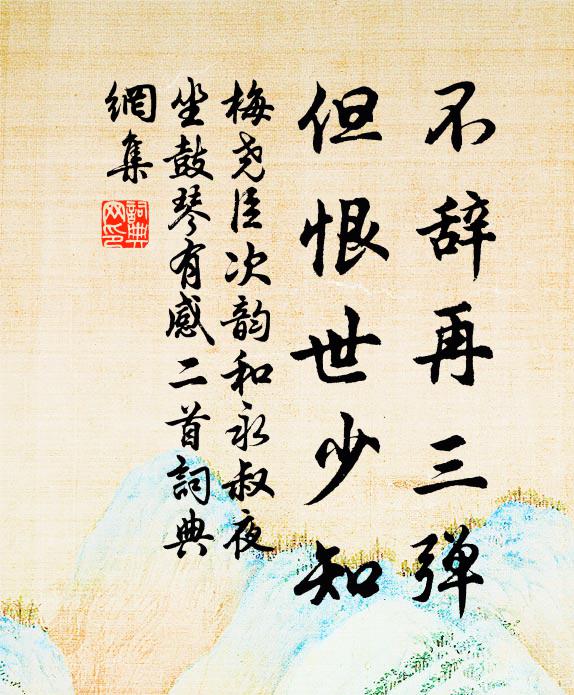 不辞再三弹
但恨世少知
梅尧臣次韵和永叔夜
坐鼓琴有感二首詞典
網集
詞典网印